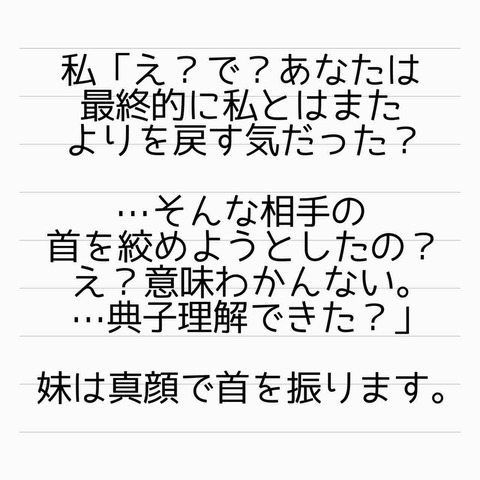 私「え？で？あなたは
最終的に私とはまた
よりを戻す気だった？
…そんな相手の
首を絞めようとしたの？
え？意味わかんない。
…典子理解できた？」
妹は真顔で首を振ります。